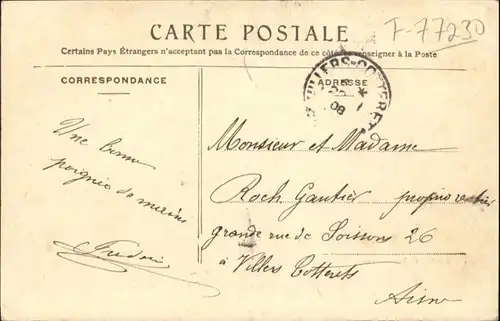 CARTE POSTALE
F-77230
Certains Pays Étrangers n'acceptant pas la Correspondance de ce côté, se renseigner à la Poste
CORRESPONDANCE
ADRESSE
VILLERS-COTTERETS
08
Une bonne
poignée de mains
Monsieur et Madame
Roch Gautier propriorentier
grande rue de Soissons 26
à Villers Cotterets
Aisne